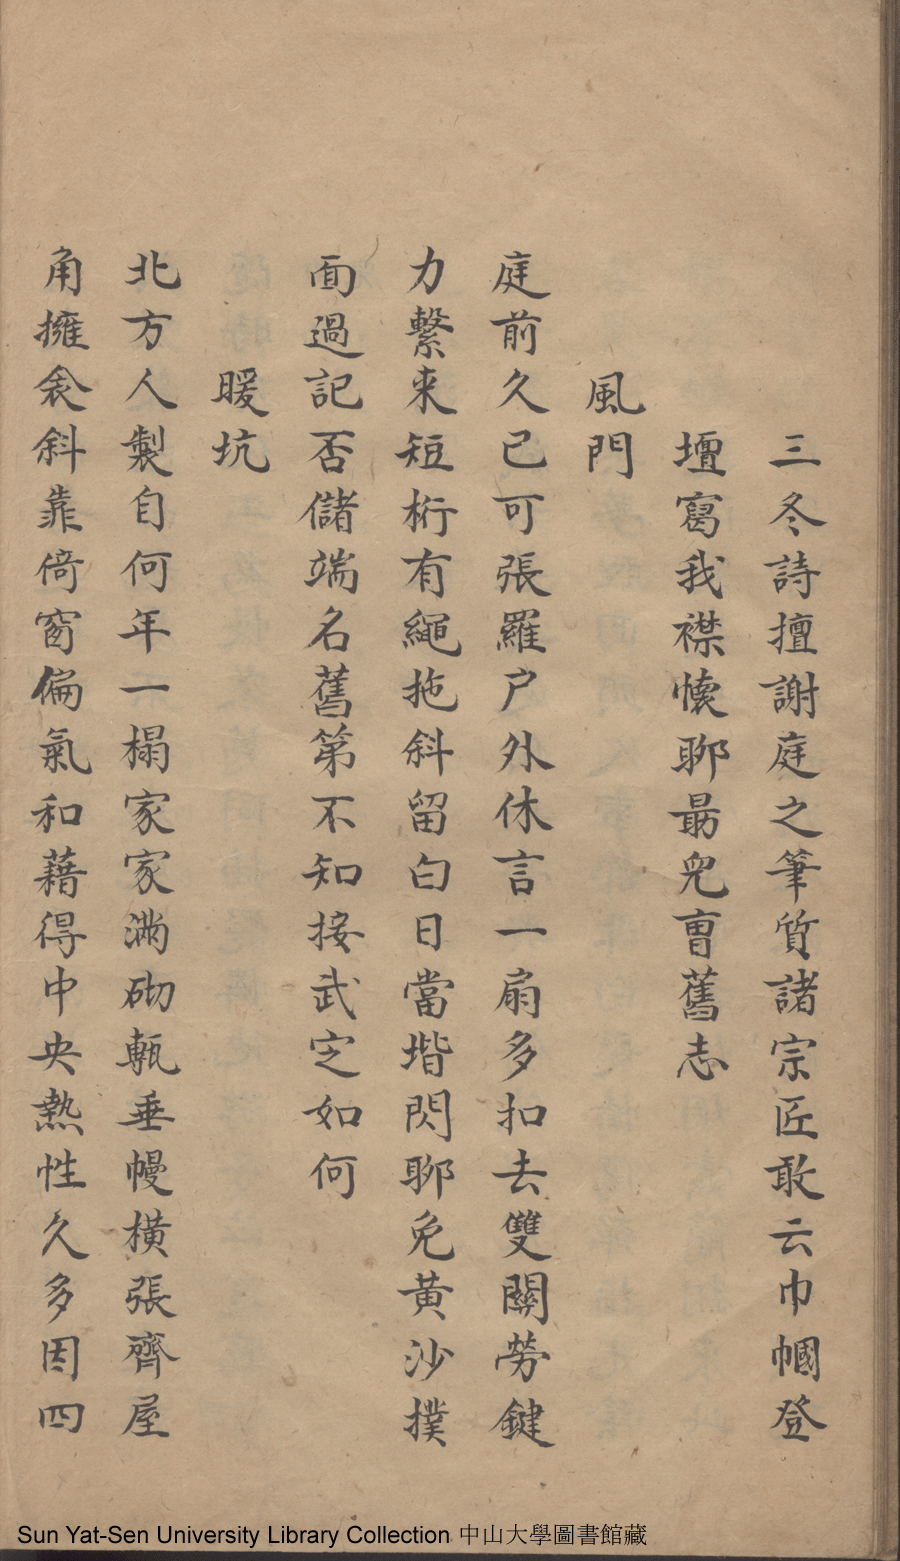 三冬詩擅謝庭之筆質諸宗匠敢云巾幗登
壇寫我襟懷聊最兒曹舊志
風門
庭前久已可張羅户外休言一扇多扣去雙關勞鍵
力繫来短桁有繩拖斜留白日當堦閃聊免黄沙撲
面過記否儲端名舊第不知接武定如何
暖坑
北方人製自何年一榻家家滿砌甎垂幔横張齊屋
角擁衾斜靠倚窗偏氣和藉得中央熱性久多因四
Sun Yat-Sen University Library Collection 中山大學圖書館藏